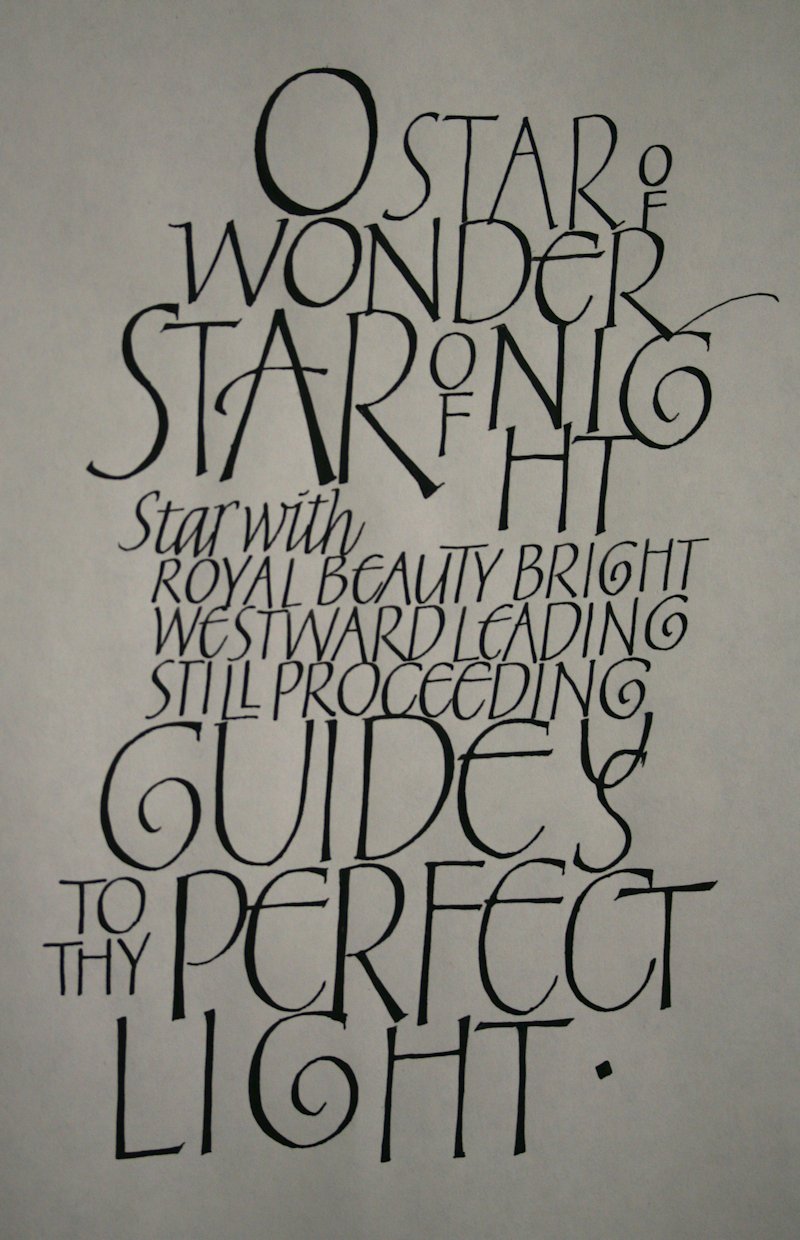 O STAR OF
WONDER
STAR OF NIG
HT
Star with
ROYAL BEAUTY BRIGHT
WESTWARD LEADING
STILL PROCEEDING
GUIDE US
TO THY PERFECT
LIGHT.